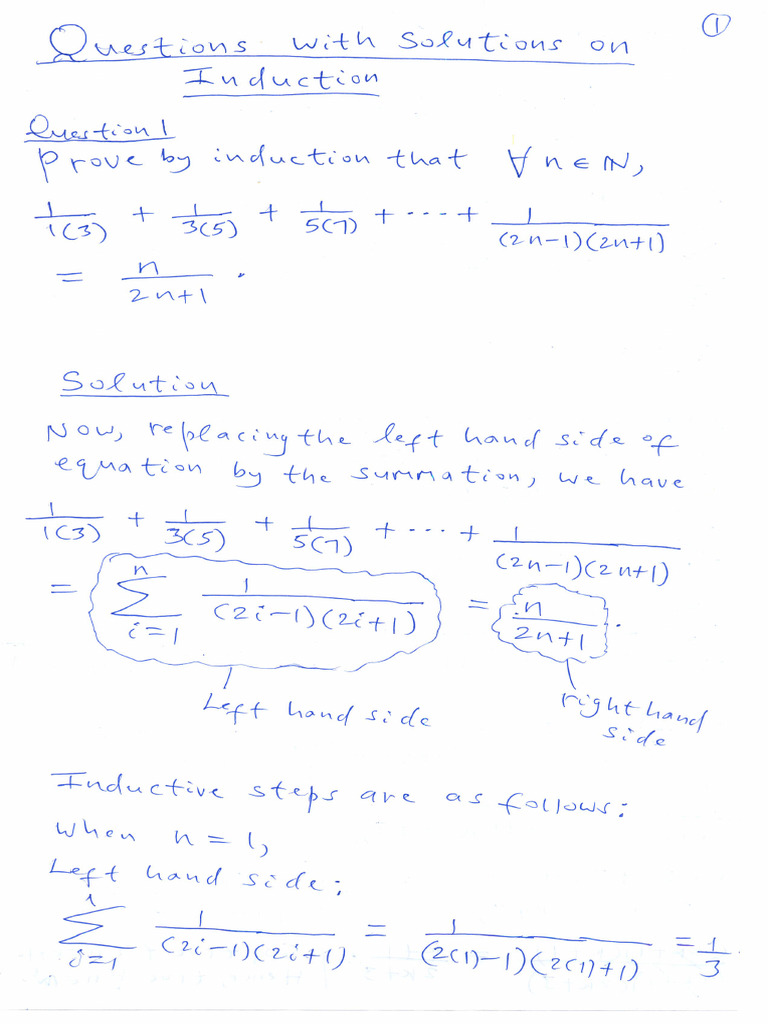 ①
Questions with Solutions on
Induction
Question 1
Prove by induction that ∀ n ∈ ℕ,
1/1(3) + 1/3(5) + 1/5(7) + ... + 1/(2n-1)(2n+1)
= n/2n+1 .
Solution
Now, replacing the left hand side of
equation by the summation, we have
1/1(3) + 1/3(5) + 1/5(7) + ... + 1/(2n-1)(2n+1)
= n∑i=1 1/(2i-1)(2i+1) = n/2n+1 .
Left hand side
right hand
side
Inductive steps are as follows:
When n = 1,
Left hand side:
1∑i=1 1/(2i-1)(2i+1) = 1/(2(1)-1)(2(1)+1) = 1/3